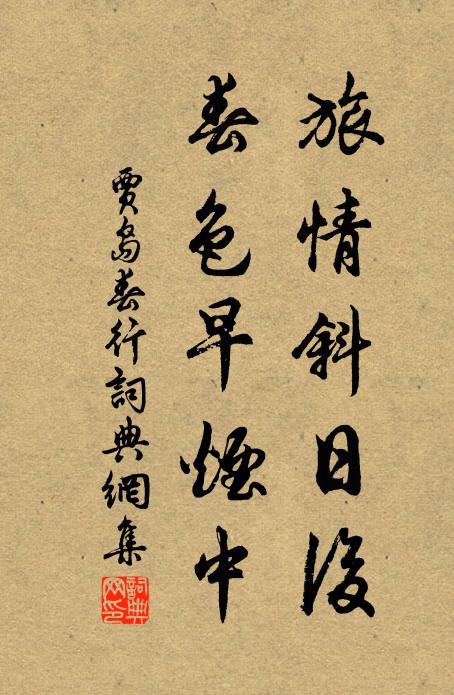 旅情斜日後
春色早煙中
賈島春行詞典網集
詞典網印